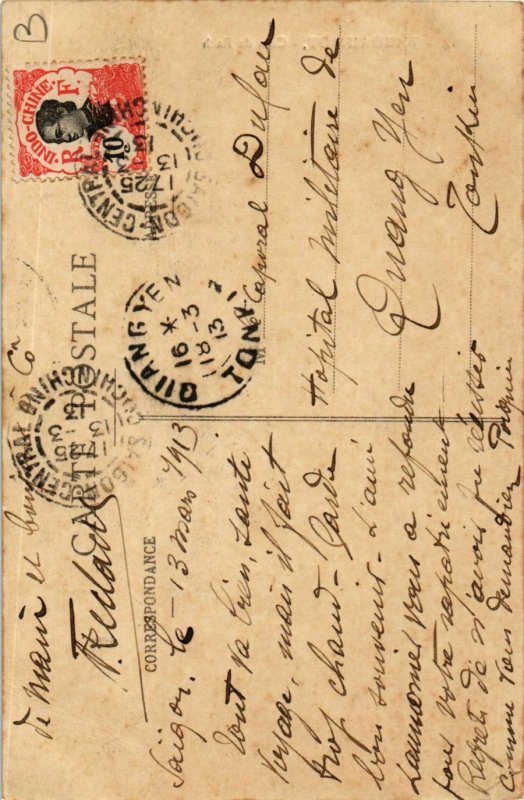 B
INDO-CHINE
R. F.
10
SAIGON-CENTRAL
COCHINCHINE
17 25
13 3
13
QUANG YEN
16 *
18-3
13
TONKIN
SAIGON CENTRAL
COCHINCHINE
17 25
13 3
13
CARTE POSTALE
CORRESPONDANCE
ADRESSE
M
Caporal Dufau
Hopital Militaire de
Quang Yen
Tonkin
Saïgon, le - 13 Mars 1913
Tout va bien, santé
voyage, mais il fait
trop chaud - Garde
bon souvenir - L'ami
vous a refondu
pour votre rapatriement
Regrets de n'avoir pu
comme vous demandiez
de Marie et Cie